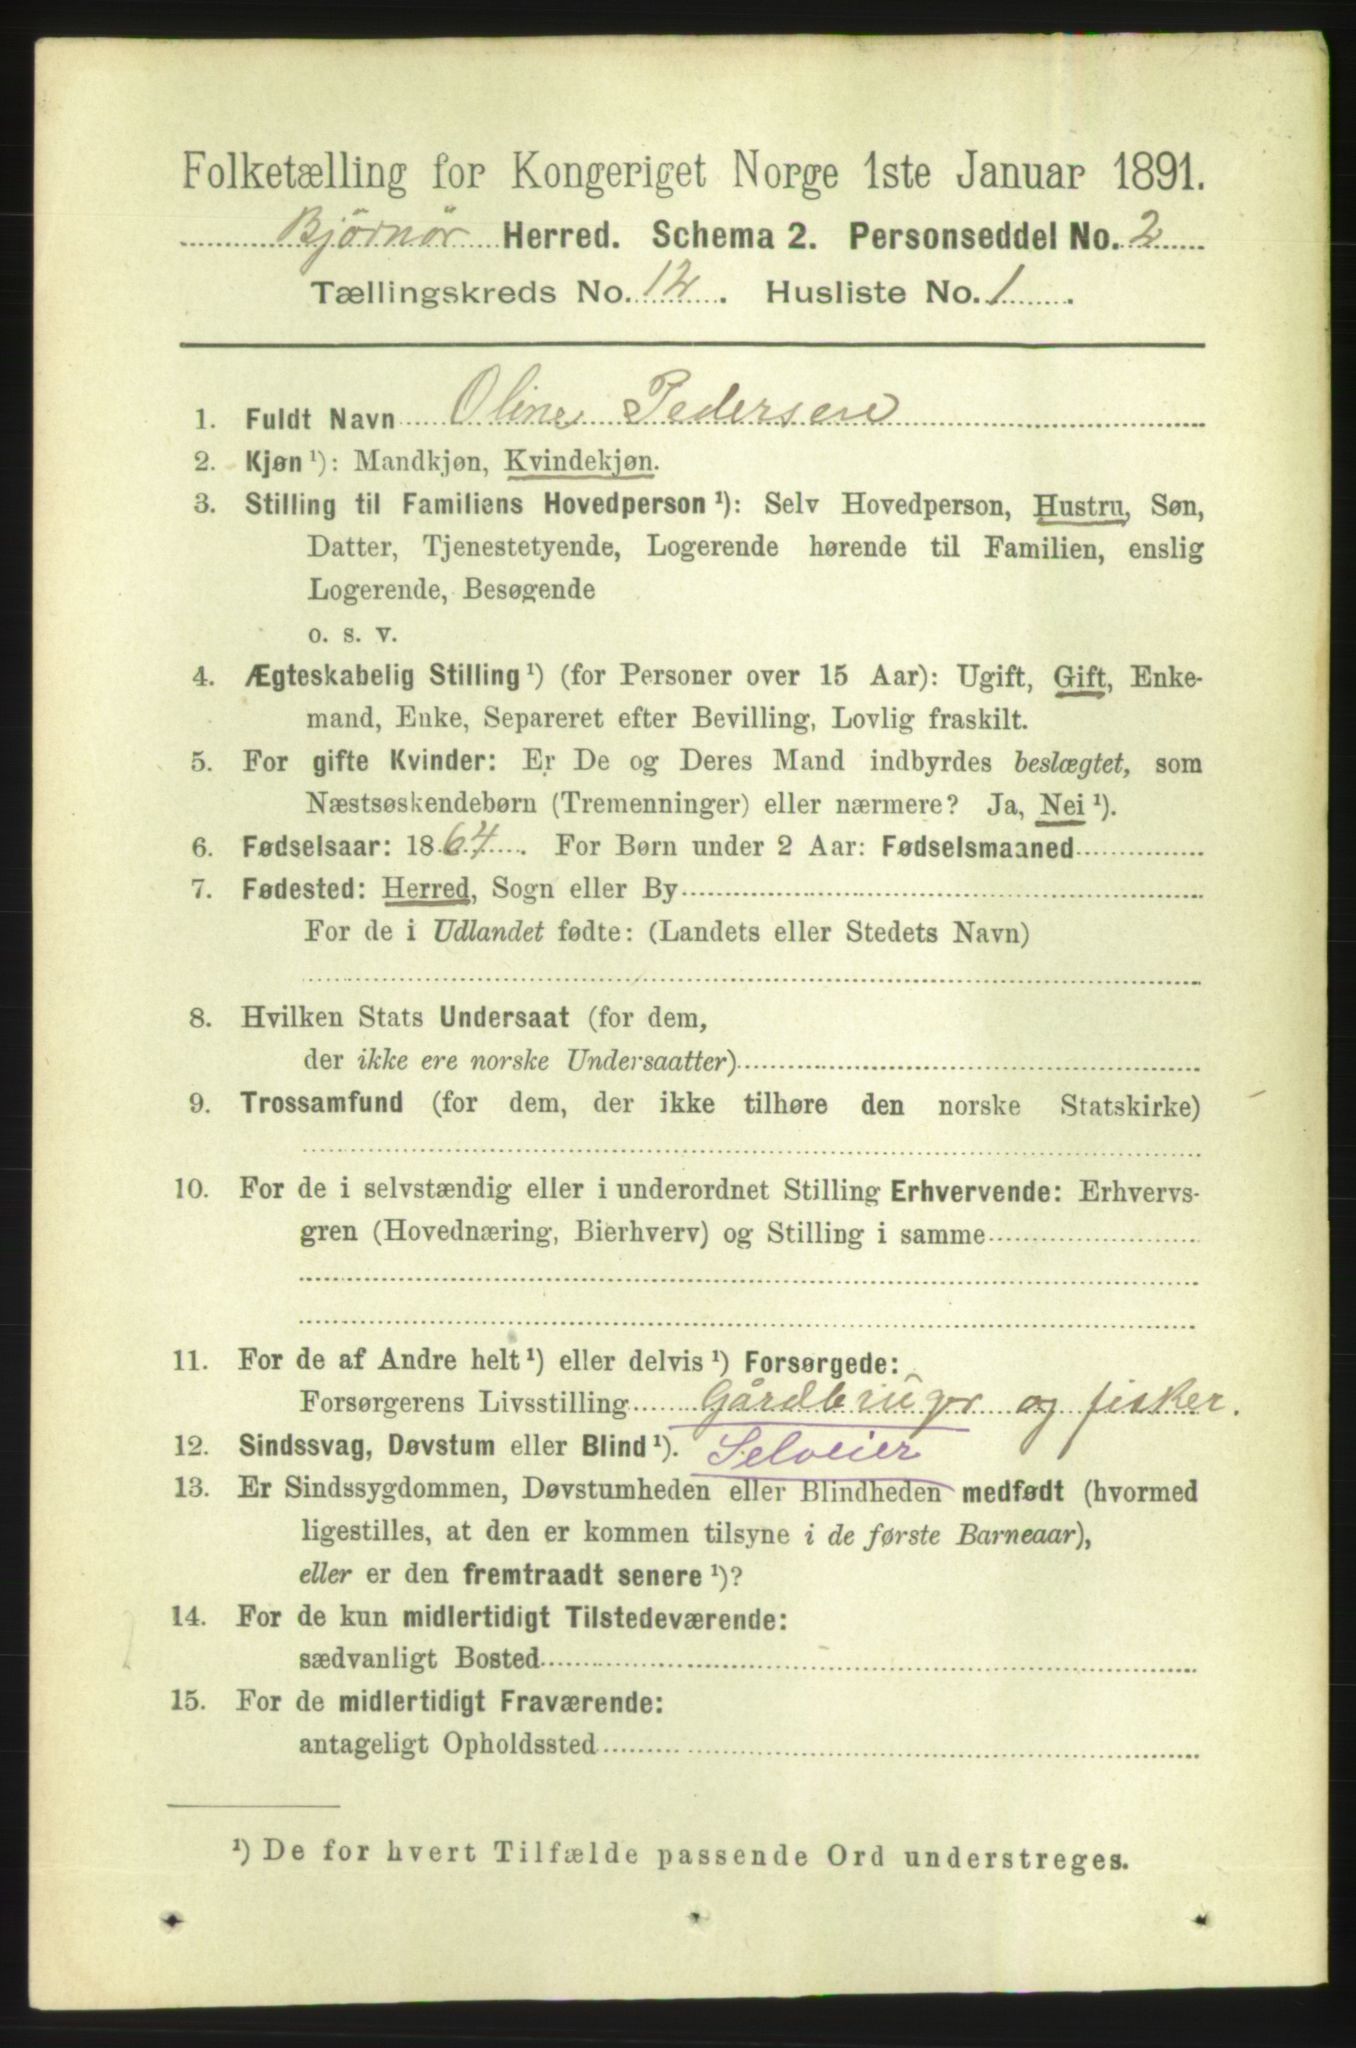 Folketælling for Kongeriget Norge 1ste Januar 1891.
Bjørnør Herred. Schema 2. Personseddel No. 2
Tællingskreds No. 12. Husliste No. 1.
1. Fuldt Navn Oline Pedersen
2. Kjøn ¹): Mandkjøn, Kvindekjøn.
3. Stilling til Familiens Hovedperson ¹): Selv Hovedperson, Hustru, Søn,
Datter, Tjenestetyende, Logerende hørende til Familien, enslig
Logerende, Besøgende
o. s. v.
4. Ægteskabelig Stilling ¹) (for Personer over 15 Aar): Ugift, Gift, Enke-
mand, Enke, Separeret efter Bevilling, Lovlig fraskilt.
5. For gifte Kvinder: Er De og Deres Mand indbyrdes beslægtet, som
Næstsøskendebørn (Tremenninger) eller nærmere? Ja, Nei ¹).
6. Fødselsaar: 1864. For Børn under 2 Aar: Fødselsmaaned
7. Fødested: Herred, Sogn eller By
For de i Udlandet fødte: (Landets eller Stedets Navn)
8. Hvilken Stats Undersaat (for dem,
der ikke ere norske Undersaatter)
9. Trossamfund (for dem, der ikke tilhøre den norske Statskirke)
10. For de i selvstændig eller i underordnet Stilling Erhvervende: Erhvervs-
gren (Hovednæring, Bierhverv) og Stilling i samme
11. For de af Andre helt ¹) eller delvis ¹) Forsørgede:
Forsørgerens Livsstilling Gårdbruger og fisker.
12. Sindssvag, Døvstum eller Blind ¹). Selveier
13. Er Sindssygdommen, Døvstumheden eller Blindheden medfødt (hvormed
ligestilles, at den er kommen tilsyne i de første Barneaar),
eller er den fremtraadt senere ¹)?
14. For de kun midlertidigt Tilstedeværende:
sædvanligt Bosted
15. For de midlertidigt Fraværende:
antageligt Opholdssted
¹) De for hvert Tilfælde passende Ord understreges.